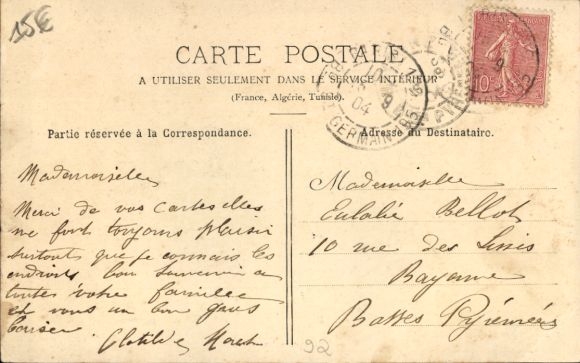 15€
CARTE POSTALE
A UTILISER SEULEMENT DANS LE SERVICE INTÉRIEUR
(France, Algérie, Tunisie).
Partie réservée à la Correspondance.
Adresse du Destinataire.
Mademoiselle
Merci de vos cartes elles
me font toujours plaisir
surtout que je connais les
endroits bon souvenir a
toute votre famille
et vous un bon gros
baiser
Clotilde
Mademoiselle
Eulalie Bellot
10 rue des
Bayonne
Basses Pyrénées
ST GERMAIN
04
10
92